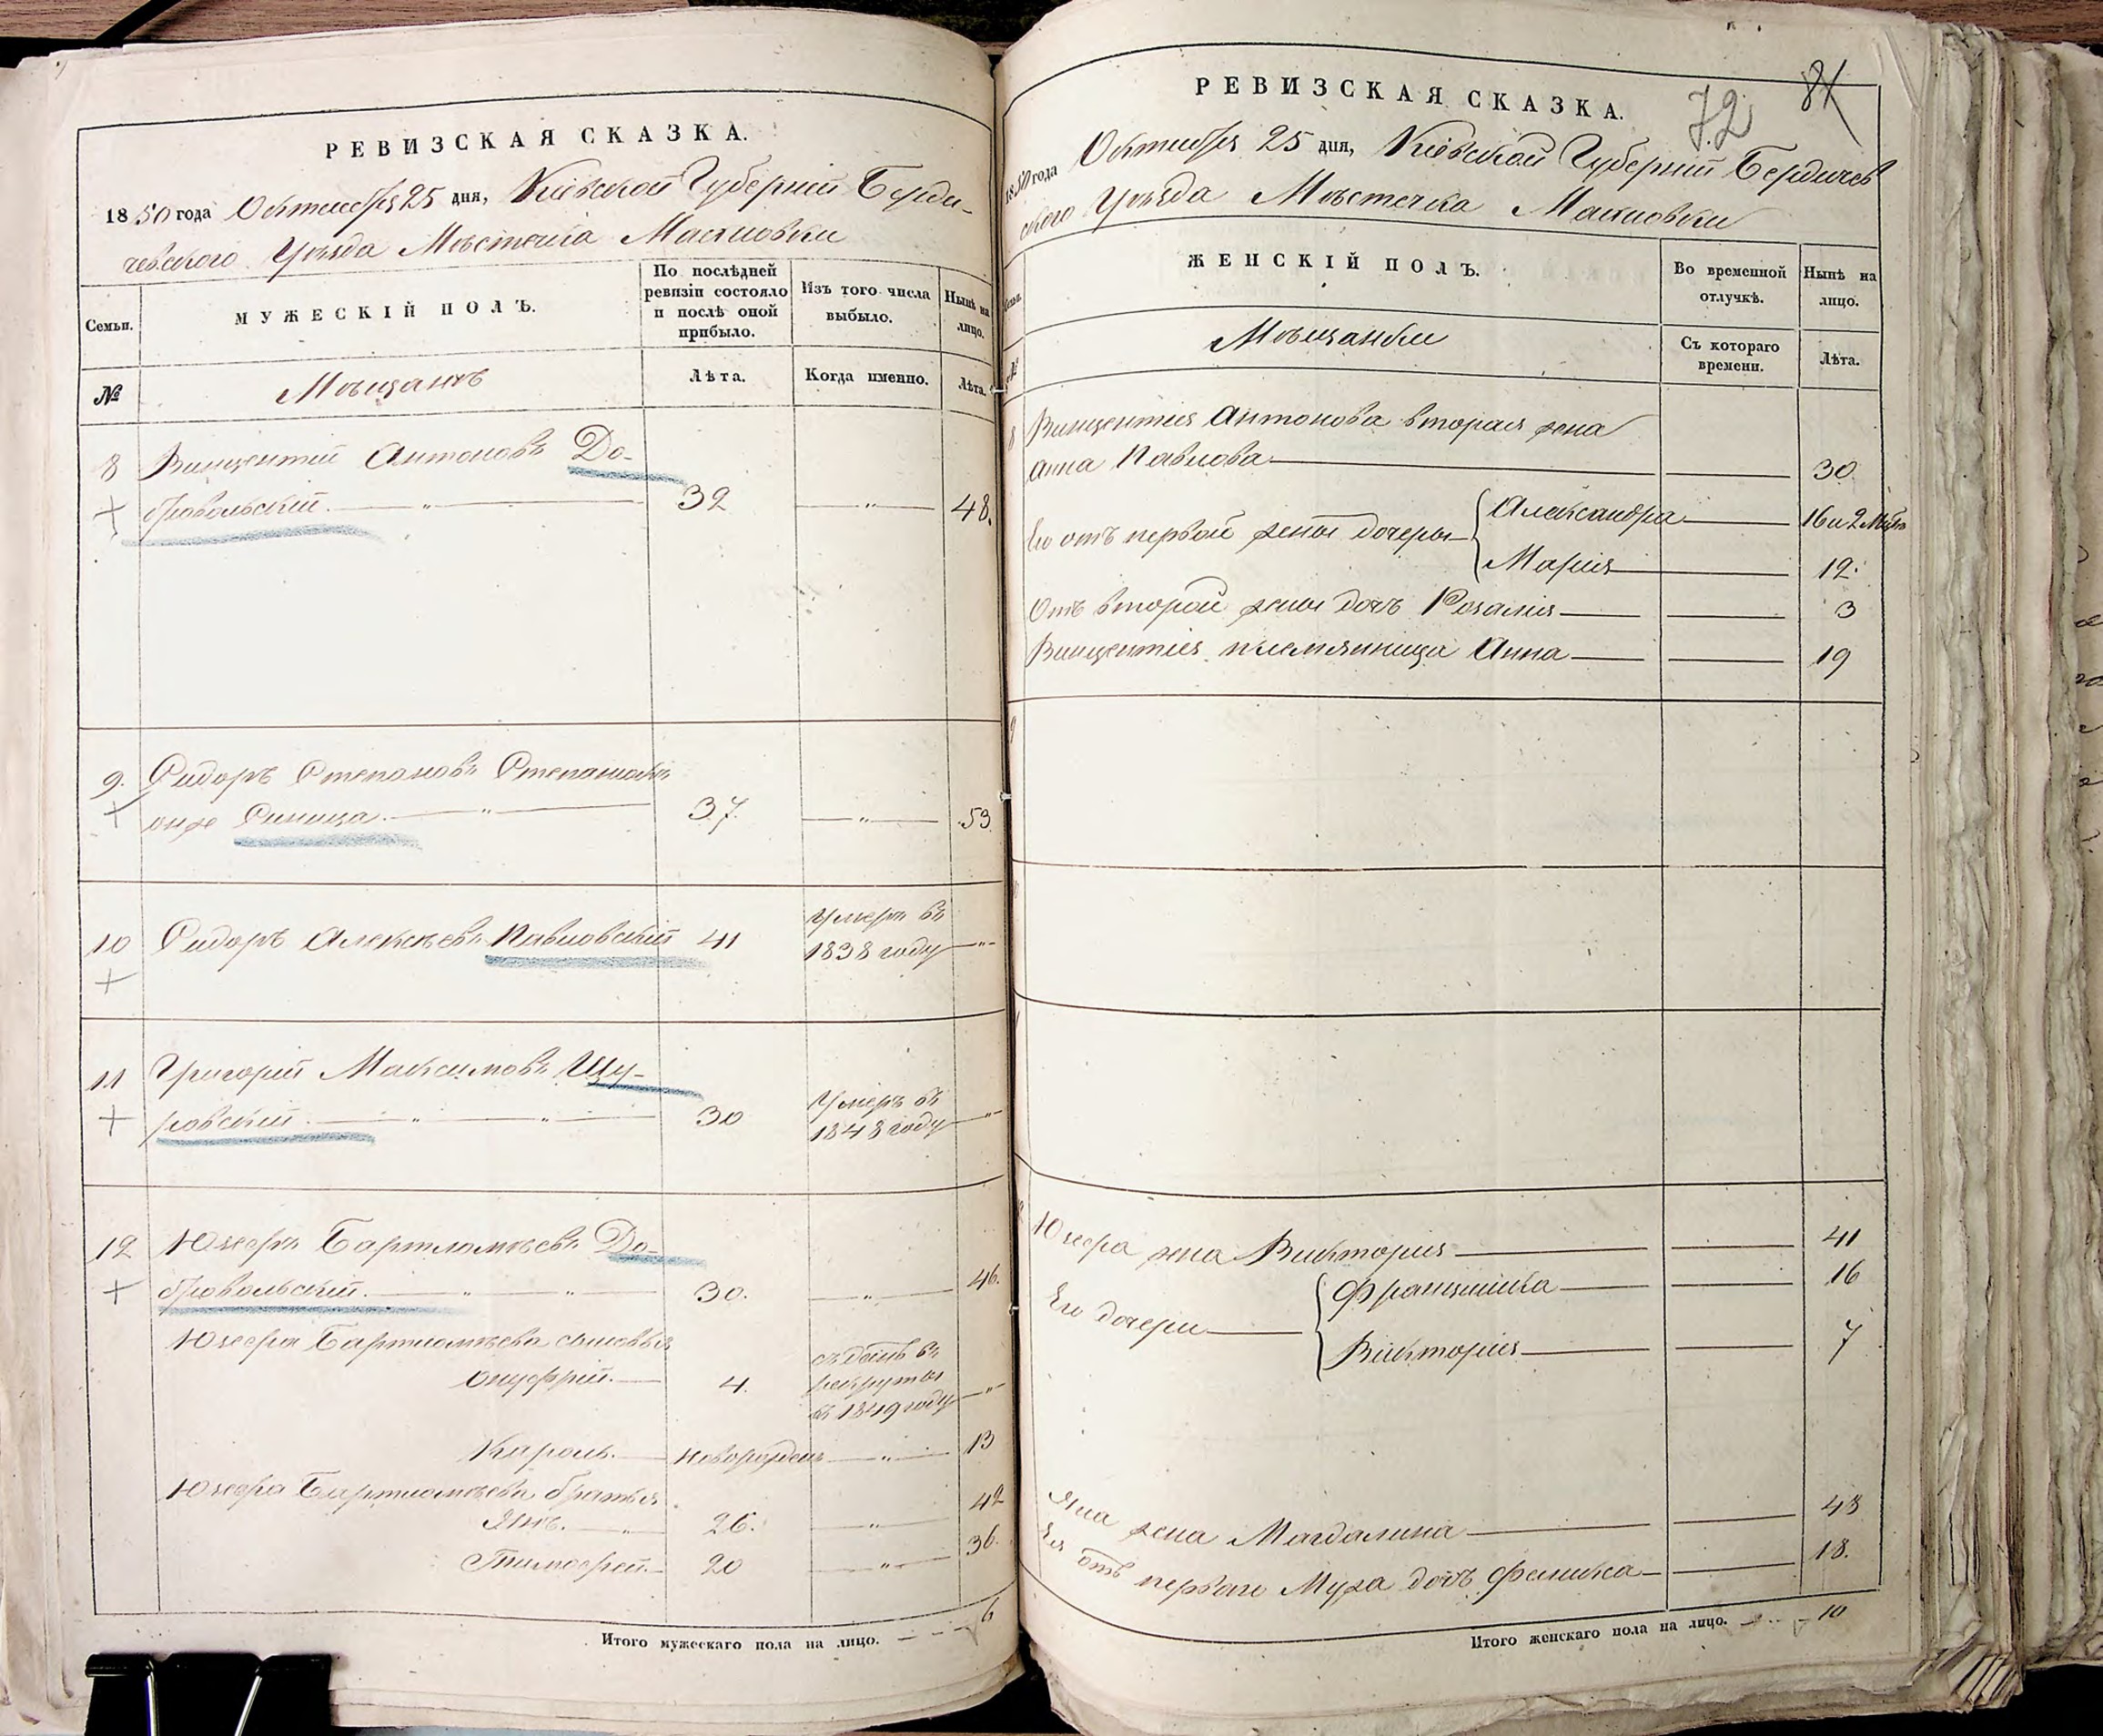 РЕВИЗСКАЯ СКАЗКА.
1850 года Октября 25 дня, Кіевской Губерніи Берди-
чевского Уѣзда Мѣстечка Махновки
Семьи.
МУЖЕСКІЙ ПОЛЪ.
По послѣдней ревизіи состояло и послѣ оной прибыло.
Изъ того числа выбыло.
Нынѣ на лицо.
№
Мѣщанъ
Лѣта.
Когда именно.
Лѣта.
8 Винцентій Антоновъ До-
бровольскій. 32 — " — 48.
9. Сидоръ Степановъ Степанюкъ
онже Синица. 37. — " — 53.
10 Сидоръ Алексѣевъ Павловскій 41 Умеръ въ
1838 году — " —
11 Григорій Максимовъ Щу-
ровскій 30 Умеръ въ
1848 году — " —
12 Юзефъ Бартломѣевъ До-
бровольскій. 30. — " — 46.
Юзефа Бартломѣева сыновья
Онуфрій. 4. въ рекруты
въ 1849 году — " —
Кароль. новорожден — " — 13
Юзефа Бартломѣева братья
Янъ. — " 26. — " — 42
Тимофей. 20 — " — 36.
Итого мужескаго пола на лицо. 6
72
81
РЕВИЗСКАЯ СКАЗКА.
1850 года Октября 25 дня, Кіевской Губерніи Бердичев
ского Уѣзда Мѣстечка Махновки
Семьи.
ЖЕНСКІЙ ПОЛЪ.
Во временной отлучкѣ.
Нынѣ на лицо.
№
Мѣщанки
Съ котораго времени.
Лѣта.
8 Винцентія Антонова вторая жена
Анна Павлова 30.
Его отъ первой жены дочери Александра 16 и 2 мѣс
Марія 12.
Отъ второй жены дочь Розалія 3
Винцентія племянница Анна 19
9
Юзефа жена Викторія 41
Его дочери Францишка 16
Викторія 7
Яна жена Магдалина 43
Ея отъ перваго мужа дочь Фелика 18.
Итого женскаго пола на лицо. 10